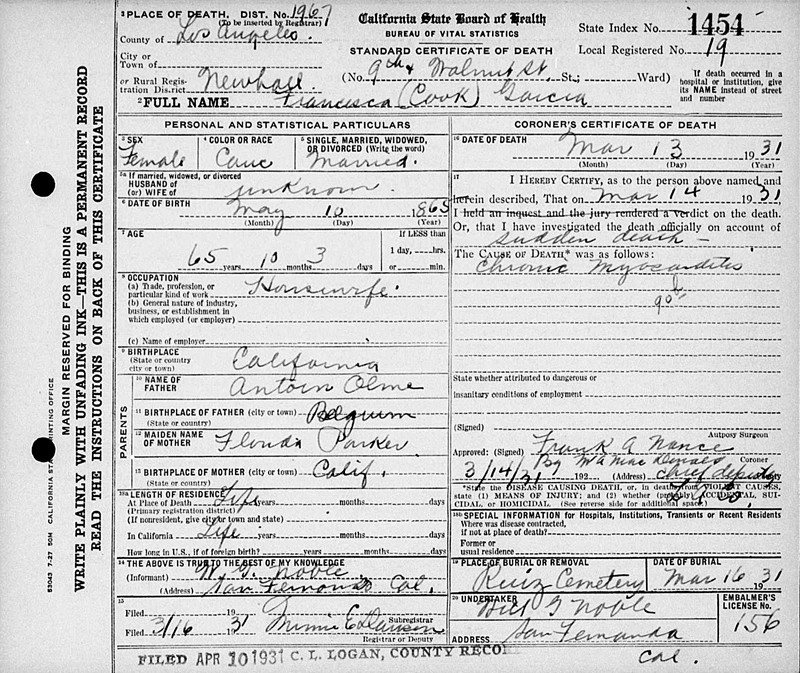 1 PLACE OF DEATH. DIST. NO. 1967
(To be inserted by Registrar)
County of Los Angeles.
City or
Town of
or Rural Regis-
tration District Newhall
California State Board of Health
BUREAU OF VITAL STATISTICS
STANDARD CERTIFICATE OF DEATH
(No. 9th & Walnut St. St.; Ward)
State Index No. 1454
Local Registered No. 19
If death occurred in a
hospital or institution, give
its NAME instead of street
and number
2 FULL NAME Francesca (Cook) Garcia
MARGIN RESERVED FOR BINDING
WRITE PLAINLY WITH UNFADING INK—THIS IS A PERMANENT RECORD
READ THE INSTRUCTIONS ON BACK OF THIS CERTIFICATE
53043 7-27 50M CALIFORNIA STATE PRINTING OFFICE
PERSONAL AND STATISTICAL PARTICULARS
3 SEX Female
4 COLOR OR RACE Cauc
5 SINGLE, MARRIED, WIDOWED,
OR DIVORCED (Write the word)
Married.
5a If married, widowed, or divorced
HUSBAND of
(or) WIFE of unknown.
6 DATE OF BIRTH May 10 1865
(Month) (Day) (Year)
7 AGE
65 years 10 months 3 days
If LESS than
1 day, hrs.
or min.
8 OCCUPATION
(a) Trade, profession, or
particular kind of work Housewife.
(b) General nature of industry,
business, or establishment in
which employed (or employer)
(c) Name of employer
9 BIRTHPLACE
(State or country
city or town) California
PARENTS
10 NAME OF
FATHER Antoin Olme
11 BIRTHPLACE OF FATHER (city or town) Belgium
(State or country)
12 MAIDEN NAME
OF MOTHER Florida Parker.
13 BIRTHPLACE OF MOTHER Calif.
(State or country)
13a LENGTH OF RESIDENCE
At Place of Death Life years months days
(Primary registration district)
(If nonresident, give city or town and state)
In California Life years months days
How long in U.S., if of foreign birth? years months days
14 THE ABOVE IS TRUE TO THE BEST OF MY KNOWLEDGE
(Informant) W. G. Noble
(Address) San Fernando Cal.
15
Filed 19
Filed 3/16 31 Minnie E Dawson
Subregistrar
Registrar or Deputy
CORONER'S CERTIFICATE OF DEATH
16 DATE OF DEATH
Mar 13 1931
(Month) (Day) (Year)
17 I HEREBY CERTIFY, as to the person above named and
herein described, That on Mar 14 1931
I held an inquest and the jury rendered a verdict on the death.
Or, that I have investigated the death officially on account of
sudden death —
The CAUSE OF DEATH,* was as follows:
Chronic Myocarditis
90
State whether attributed to dangerous or
insanitary conditions of employment
(Signed)
Autopsy Surgeon
Approved: (Signed) Frank A Nance
Coroner
By
3/14/31 192 (Address) Chief deputy
*State the DISEASE CAUSING DEATH, or, in deaths from VIOLENT CAUSES,
state (1) MEANS OF INJURY; and (2) whether (probably) ACCIDENTAL, SUI-
CIDAL, or HOMICIDAL. (See reverse side for additional space.)
18b SPECIAL INFORMATION for Hospitals, Institutions, Transients or Recent Residents
Where was disease contracted,
if not at place of death?
Former or
usual residence
19 PLACE OF BURIAL OR REMOVAL
Ruiz Cemetery
DATE OF BURIAL
Mar 16 1931
20 UNDERTAKER Will G Noble
ADDRESS San Fernando
Cal.
EMBALMER'S
LICENSE No.
156
FILED APR 10 1931 C. L. LOGAN, COUNTY RECO